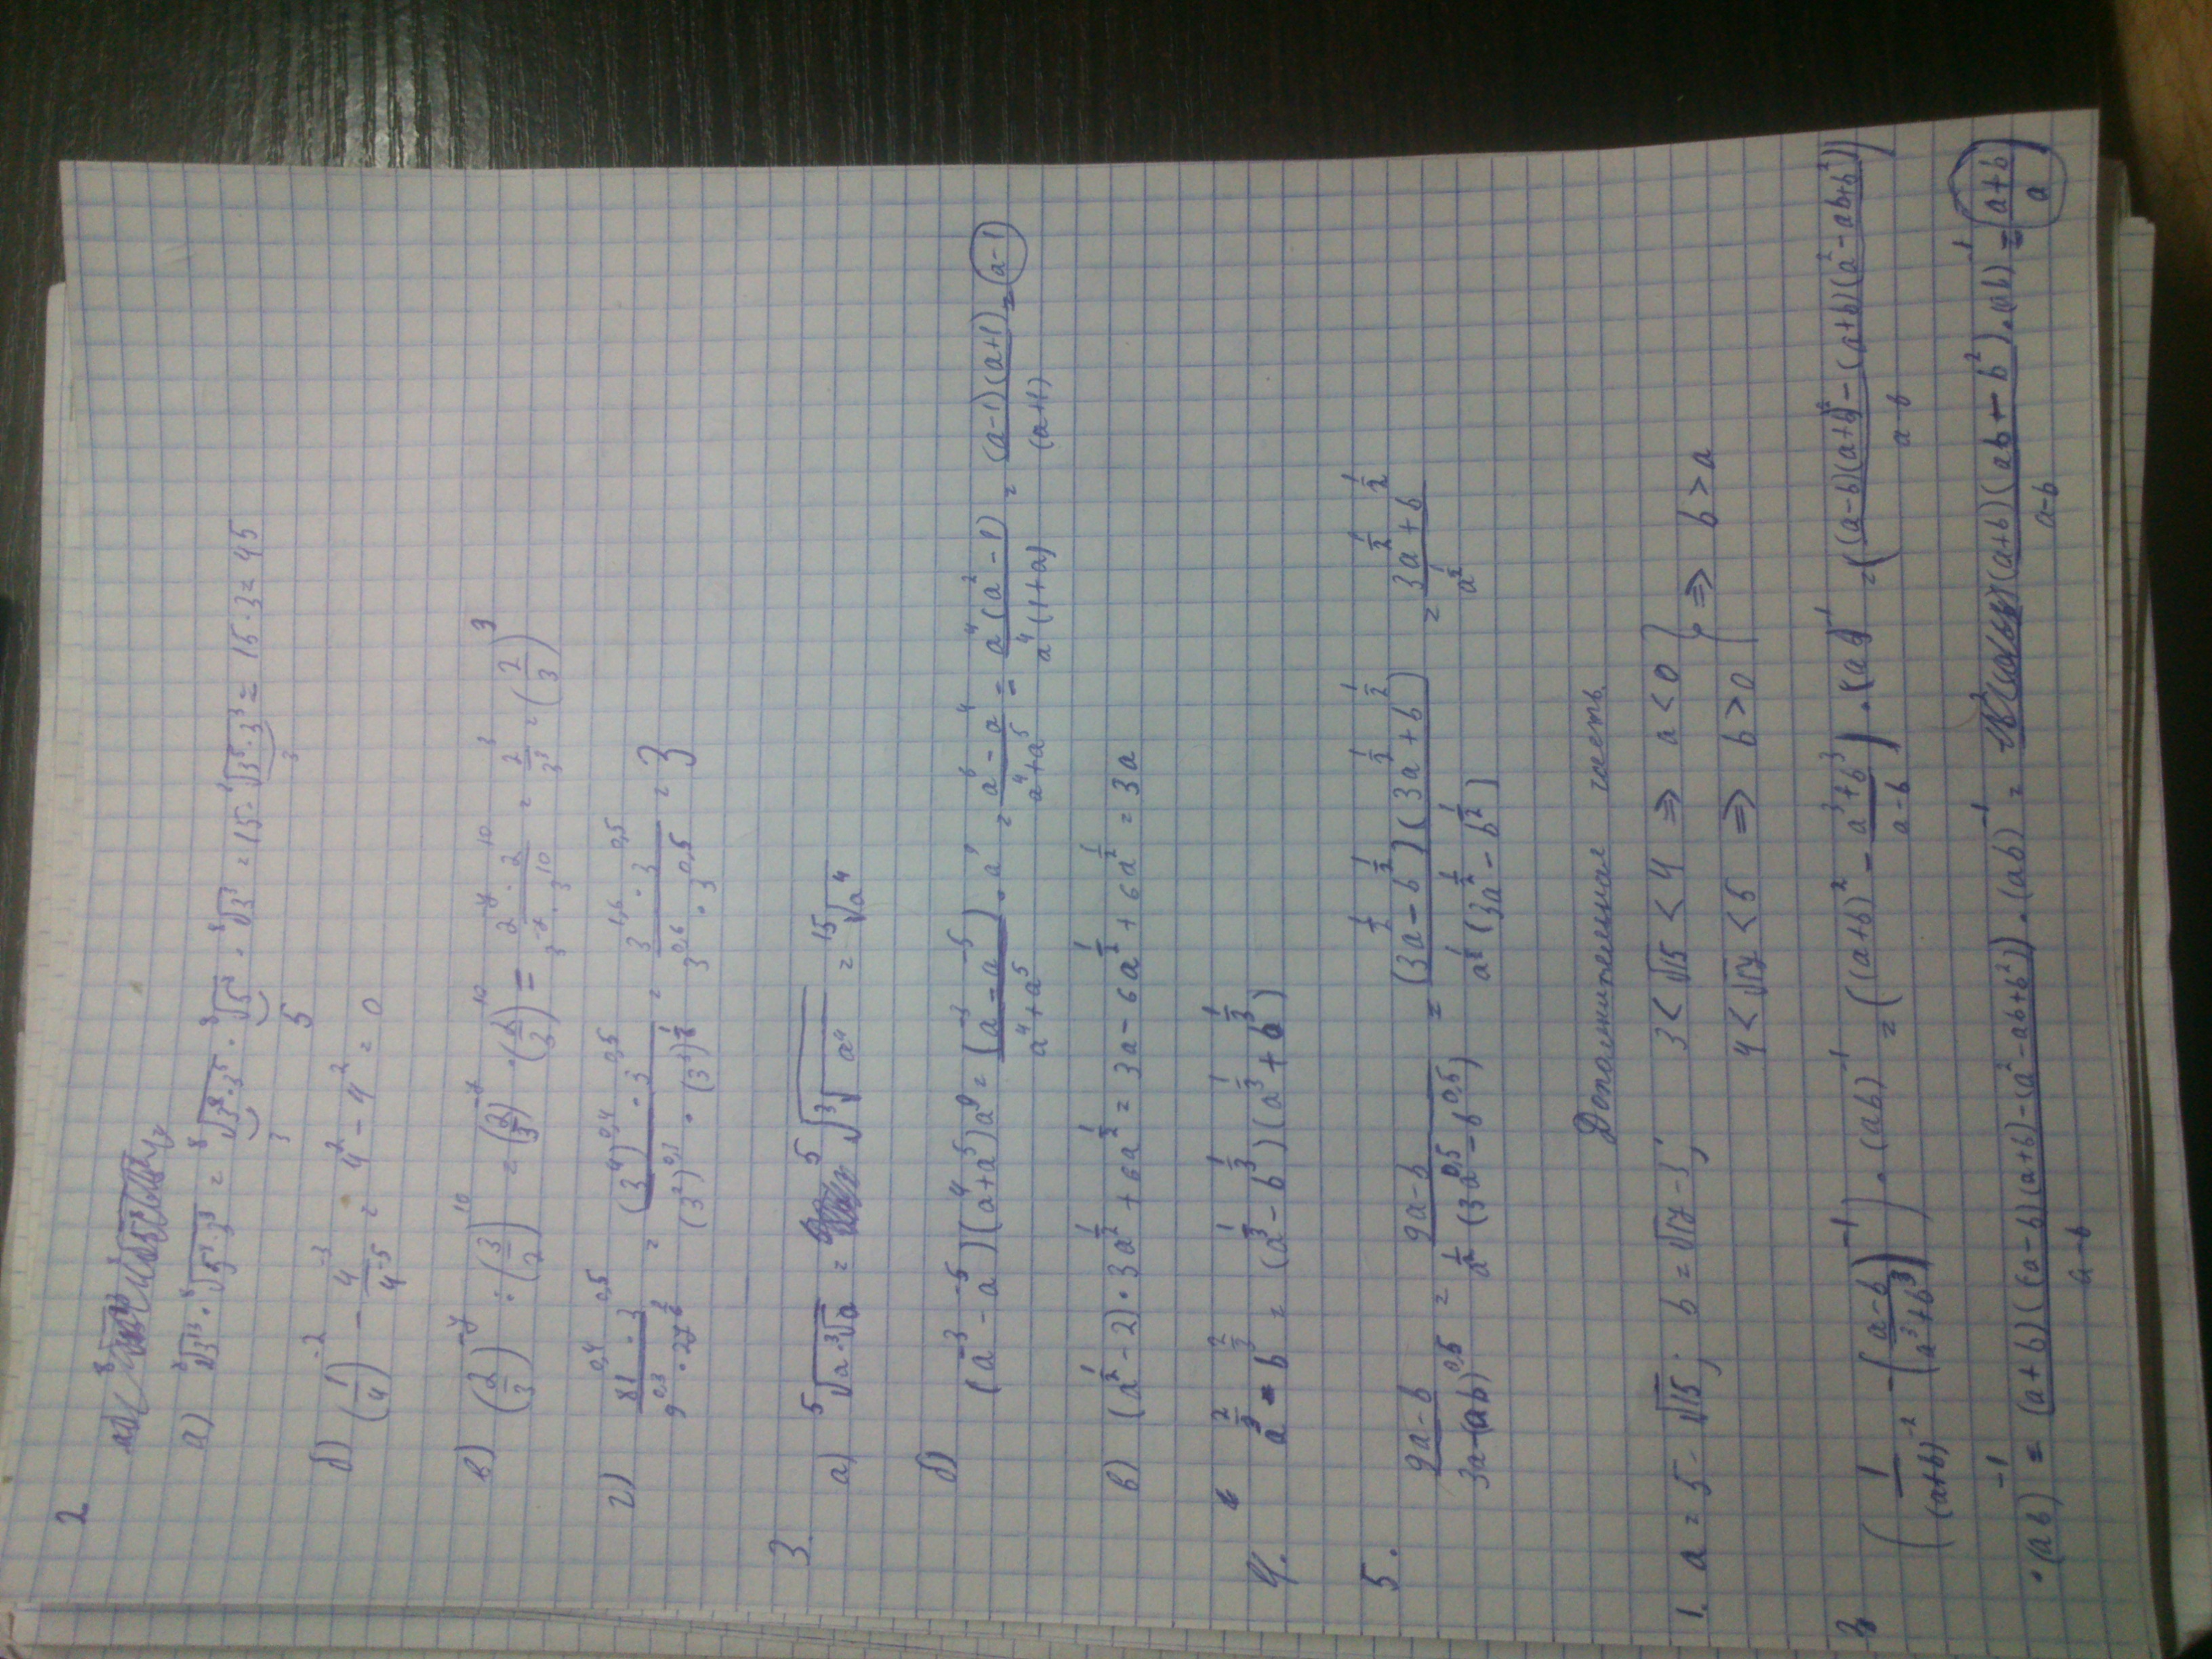 2
а) ⁸√3¹³ · ⁸√5⁸·3³ = ⁸√3⁸·3⁵ · ⁸√5⁸ · ⁸√3³ = 15 · ⁸√3⁵·3³ = 15·3 = 45
3 5 3
б) (1/4)⁻² − 4⁻³/4⁻⁵ = 4² − 4² = 0
в) (2/3)⁻⁷ : (3/2)¹⁰ = (2/3)⁻⁷ · (2/3)¹⁰ = 2⁻⁷·2¹⁰/3⁻⁷·3¹⁰ = 2³/3³ = (2/3)³
г) 81^0,4 · 3^0,5 / 9^0,3 · 27^(1/6) = (3⁴)^0,4 · 3^0,5 / = 3^1,6 · 3^0,5 / 3^0,6 · 3^0,5 = 3
3.
а) ⁵√a·³√a = ⁵√³√a⁴ = ¹⁵√a⁴
б) (a⁻³ − a⁻⁵)(a⁴+a⁵)a⁹ = (a⁻³ − a⁻⁵ / a⁴+a⁵) · a⁹ = a⁶ − a⁴ / a⁴+a⁵ = a⁴(a² − 1) / a⁴(1+a) = (a−1)(a+1) / (a+1) = a−1
в) (a^(1/2) − 2) · 3a^(1/2) + 6a^(1/2) = 3a − 6a^(1/2) + 6a^(1/2) = 3a
4. a^(2/3) − b^(2/3) = (a^(1/3) − b^(1/3))(a^(1/3) + b^(1/3))
5. 9a−b / 3a−(ab)^0,5 = 9a−b / a^(1/2)(3a^0,5 − b^0,5) = (3a^(1/2) − b^(1/2))(3a^(1/2) + b^(1/2)) / a^(1/2)(3a^(1/2) − b^(1/2)) = 3a^(1/2) + b^(1/2) / a^(1/2)
Дополнительная часть
1. a = 5 − √15; b = √17 − 3; 3 < √15 < 4 ⇒ a < 0 } ⇒ b > a
4 < √17 < 5 ⇒ b > 0
(1/(a+b)⁻² − (a−b/a³+b³)⁻¹) · (ab)⁻¹ = ((a+b)² − a³+b³/a−b) · (ab)⁻¹ = ((a−b)(a+b)² − (a+b)(a²−ab+b²) / a−b)
· (ab)⁻¹ = (a+b)((a−b)(a+b) − (a²−ab+b²)) / a−b · (ab)⁻¹ = (a+b)(ab − b²) / a−b · (ab)⁻¹ = a+b / a